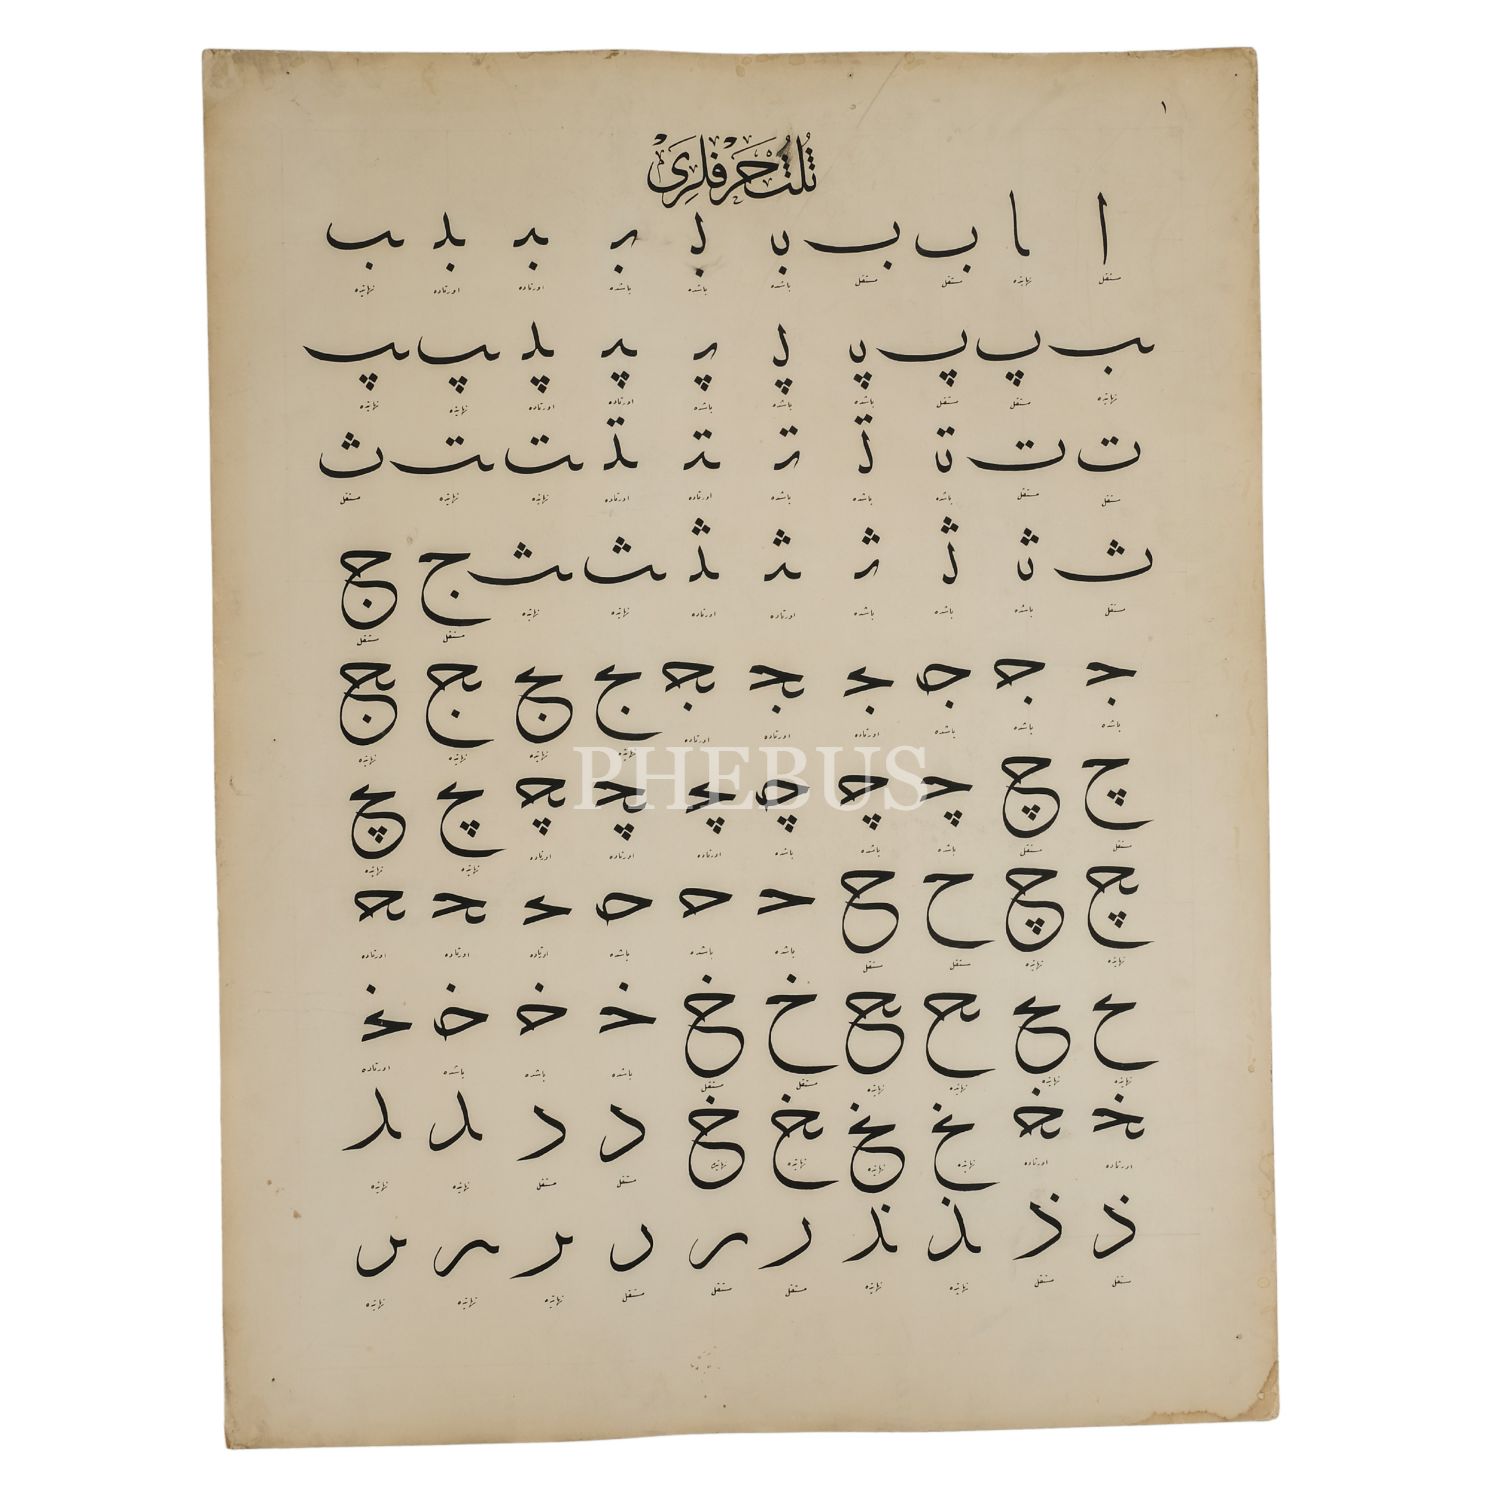 ١
ثلث حرفلری
ا ا ب ب ب ب ب ب ب ب
مستقل نهایتده مستقل مستقل باشده باشده باشده اورتاده اورتاده نهایتده
ب پ پ پ پ پ پ پ پ پ
نهایتده مستقل مستقل باشده باشده باشده اورتاده اورتاده نهایتده نهایتده
ت ت ت ت ت ت ت ت ت ث
مستقل مستقل باشده باشده باشده اورتاده اورتاده نهایتده نهایتده مستقل
ث ث ث ث ث ث ث ث ج ج
مستقل باشده باشده باشده اورتاده اورتاده نهایتده نهایتده مستقل مستقل
ج ج ج ج ج ج ج ج ج ج
باشده باشده باشده اورتاده اورتاده اورتاده نهایتده نهایتده نهایتده نهایتده
PHEBUS
چ چ چ چ چ چ چ چ چ چ
مستقل مستقل باشده باشده باشده اورتاده اورتاده اورتاده نهایتده نهایتده
چ چ ح ح ح ح ح ح ح ح
نهایتده نهایتده مستقل مستقل باشده باشده باشده اورتاده اورتاده اورتاده
ح ح ح ح خ خ خ خ خ خ
نهایتده نهایتده نهایتده نهایتده مستقل مستقل باشده باشده باشده اورتاده
خ خ خ خ خ خ د د د د
اورتاده اورتاده نهایتده نهایتده نهایتده نهایتده مستقل مستقل نهایتده نهایتده
ذ ذ ذ ذ ر ر ر ر ر ر
مستقل مستقل نهایتده نهایتده مستقل مستقل مستقل نهایتده نهایتده نهایتده